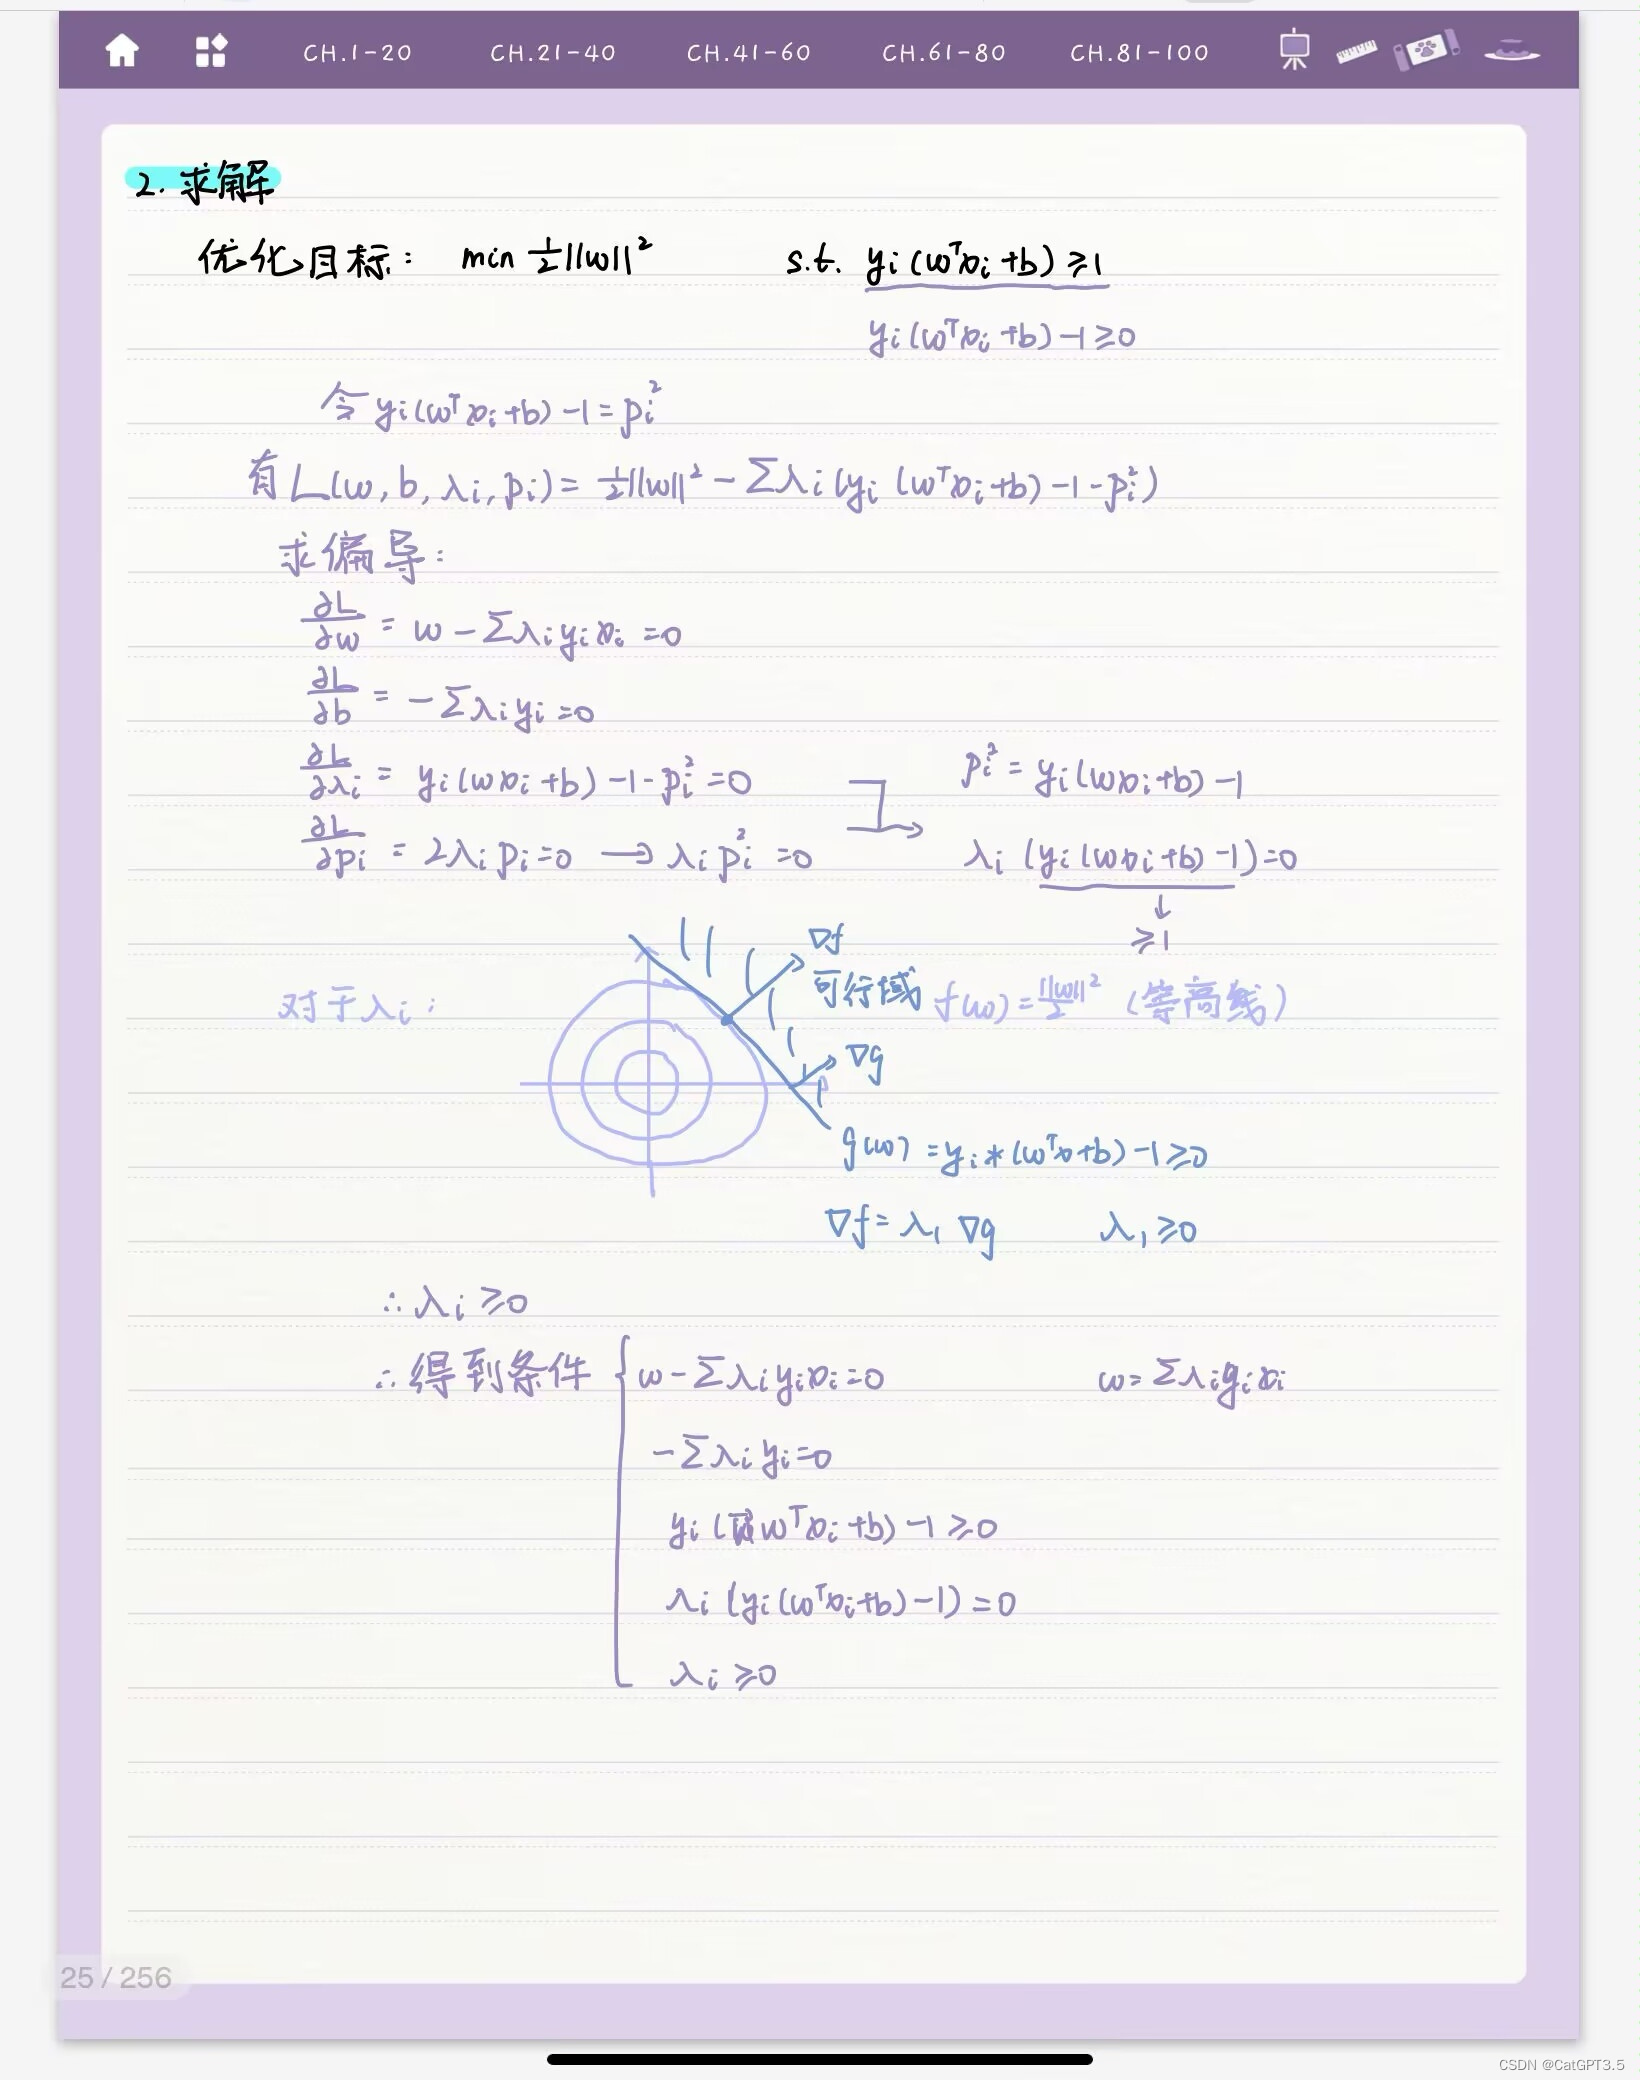 CH.1-20 CH.21-40 CH.41-60 CH.61-80 CH.81-100
2. 求解
优化目标: min ½||w||² s.t. yᵢ(wᵀxᵢ+b)≥1
yᵢ(wᵀxᵢ+b)-1≥0
令yᵢ(wᵀxᵢ+b)-1=pᵢ²
有L(w,b,λᵢ,pᵢ)=½||w||²-Σλᵢ(yᵢ(wᵀxᵢ+b)-1-pᵢ²)
求偏导:
∂L/∂w = w-Σλᵢyᵢxᵢ=0
∂L/∂b = -Σλᵢyᵢ=0
∂L/∂λᵢ = yᵢ(wxᵢ+b)-1-pᵢ²=0 pᵢ²=yᵢ(wxᵢ+b)-1
∂L/∂pᵢ = 2λᵢpᵢ=0 → λᵢpᵢ²=0 λᵢ(yᵢ(wxᵢ+b)-1)=0
↓
≥1
∇f
对于λᵢ: 可行域 f(w)=||w||²/2 (等高线)
∇g
g(w)=yᵢ*(wᵀx+b)-1≥0
∇f=λ₁∇g λ₁≥0
∴λᵢ≥0
∴得到条件 { w-Σλᵢyᵢxᵢ=0 w=Σλᵢyᵢxᵢ
-Σλᵢyᵢ=0
yᵢ(wᵀxᵢ+b)-1≥0
λᵢ(yᵢ(wᵀxᵢ+b)-1)=0
λᵢ≥0
25 / 256
CSDN @CatGPT3.5